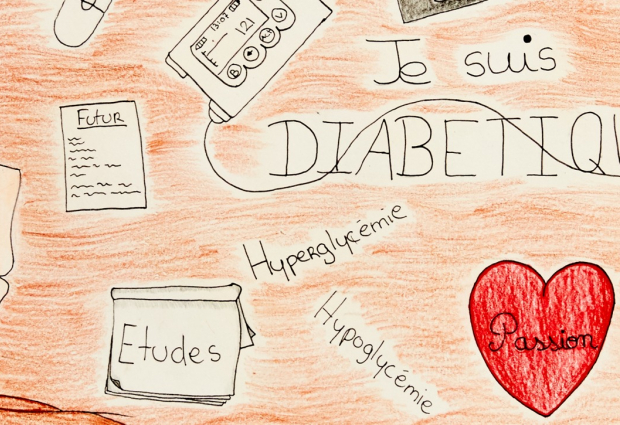 13:07
121
Je suis
FUTUR
DIABETIQU
Hyperglycémie
Hypoglycémie
Etudes
Passion